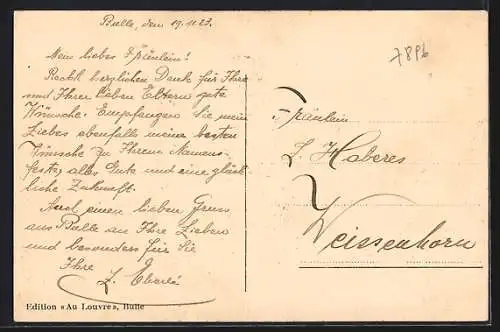 Bulle, den 19.11.23.
7896
Mein liebes Fräulein!
Recht herzlichen Dank für Ihre
und Ihrer lieben Eltern gute
Wünsche. Empfangen Sie mein
Liebes ebenfalls meine besten
Wünsche zu Ihrem Namens-
feste, alles Gute und eine glück-
liche Zukunft.
Auch einen lieben Gruss
aus Bulle an Ihre Lieben
und besonders für Sie
Ihre
Fräulein
Haberes
Weissenhorn
Edition «Au Louvre», Bulle